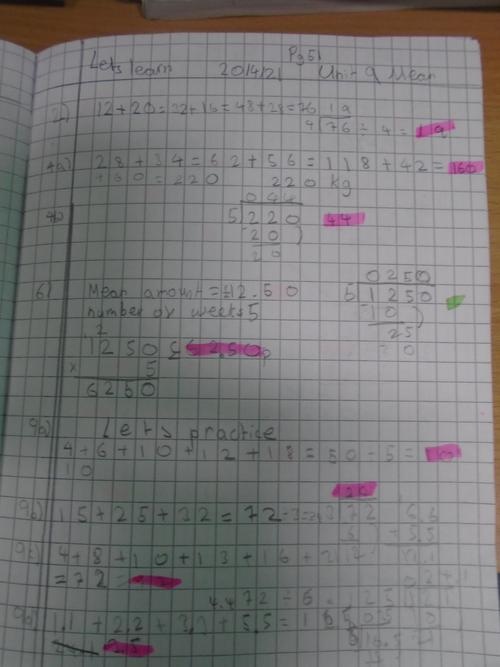 Pg 51
Lets learn 20/4/21 Unit 9 Mean
2) 12+20=32+16=48+28=76 19
4 76 ÷ 4 = 19
4a) 28+34=62+56=118+42=160
+60=220 220 kg
044
4b) 5 220 44
20
20
6) Mean amount = £12.50 0250
number of weeks 5 5 1250
2 10
1250 £62.50p 25
x 5 0
6250
Lets practice
9a) 4+6+10+12+18=50÷5=10
10
9b) 15+25+32=72÷3=24 3 72
9c) 4+8+10+13+16+21
=72
72÷6
9d) 1.1+2.2+3.3+5.5=